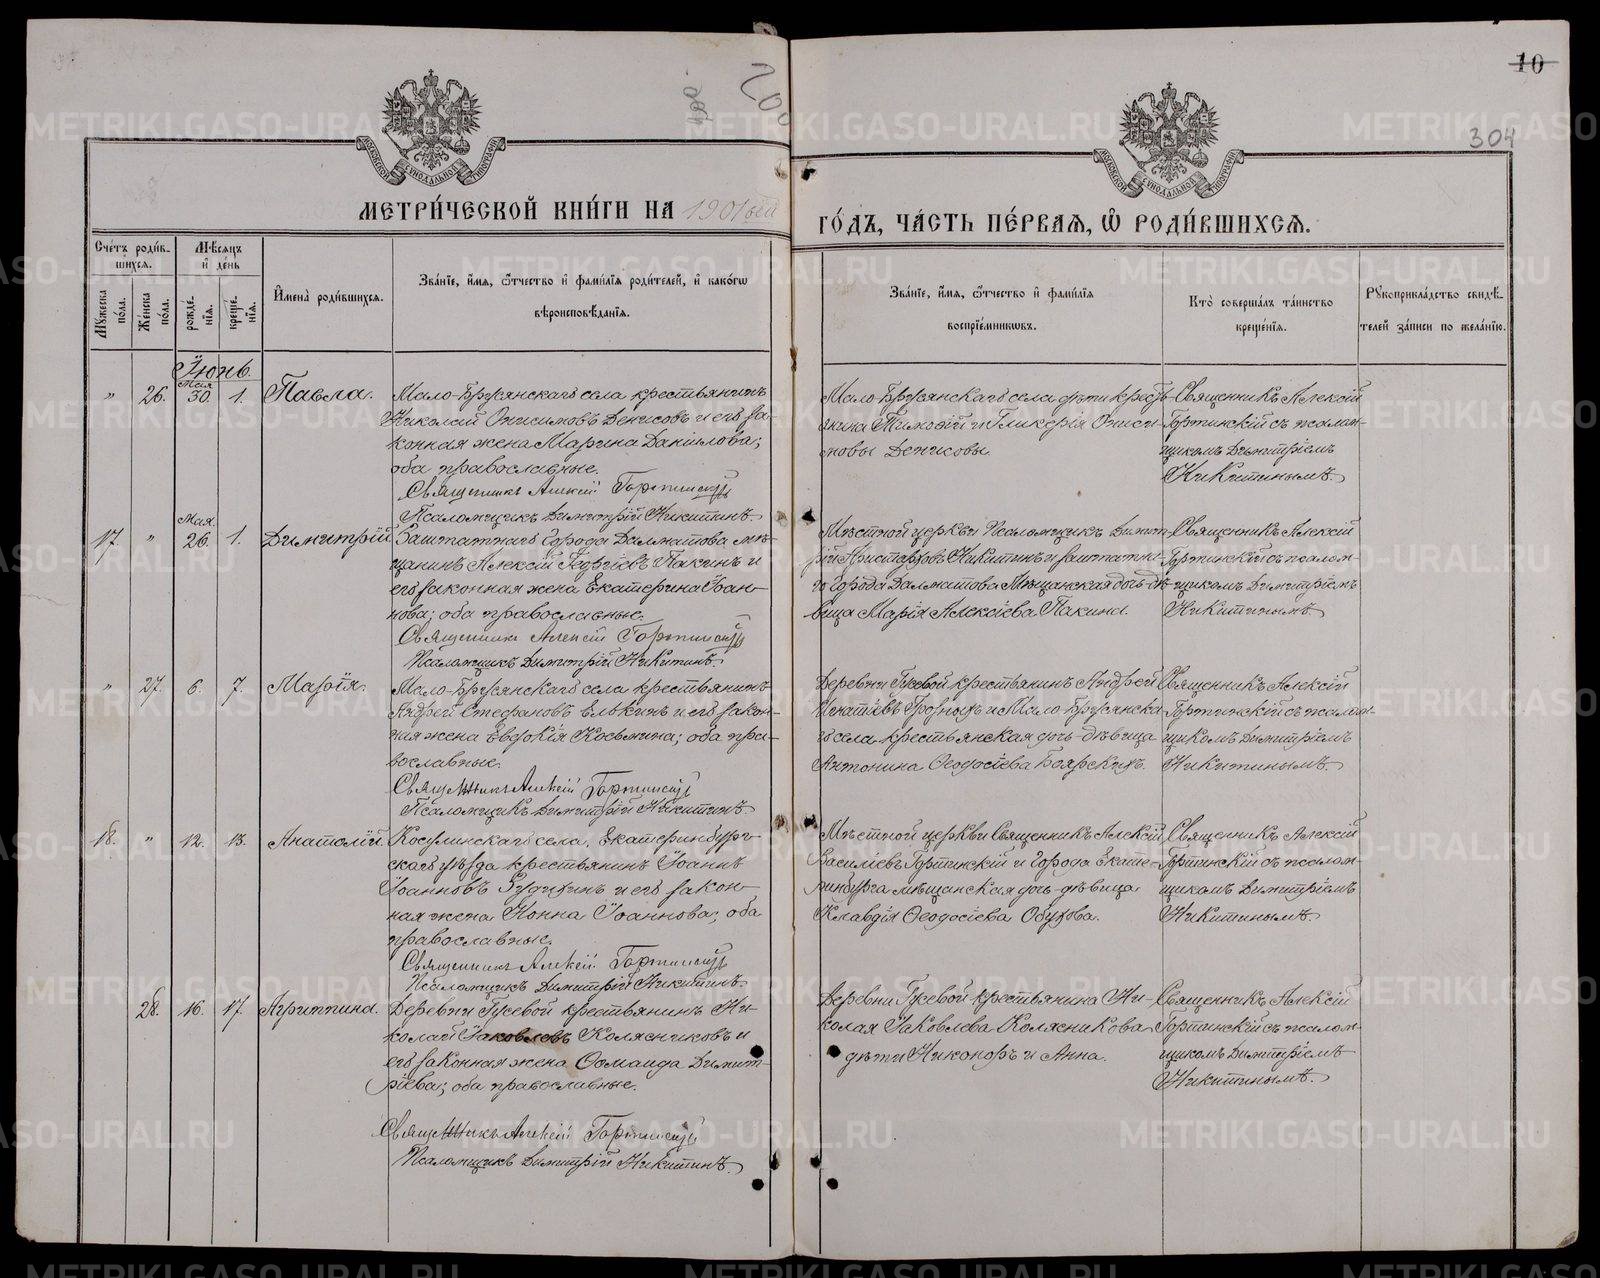 10
304
МЕТРИ́ЧЕСКОЙ КНИ́ГИ НА 1901 ый
ГО́ДЪ, ЧА́СТЬ ПЕ́РВАѦ, Ѡ҆ РОДИ́ВШИХСѦ.
Сче́тъ роди́в-
ши́хсѧ.
Мѣ́сѧцъ
и҆ де́нь
Мꙋ́жеска
по́ла.
Же́нска
по́ла.
рожде́-
нїѧ.
креще́-
нїѧ.
И҆мена̀ роди́вшихсѧ.
Зва́нїе, и҆́мѧ, ѻ҆́тчество и҆ фами́лїѧ роди́телей, и҆ како́гѡ
вѣроисповѣ́данїѧ.
Зва́нїе, и҆́мѧ, ѻ҆́тчество и҆ фами́лїѧ
воспрїе́мникѡвъ.
Кто̀ соверша́лъ та́инство
креще́нїѧ.
Рꙋкоприкла́дство свидѣ́-
телей за́писи по жела́нїю.
Іюнь.
" 26. Мая 30. 1. Павла.
Мало-Брусянскаго села крестьянинъ
Николай Онисимовъ Денисовъ и его за-
конная жена Марина Данилова;
оба православные.
Священникъ Алексій Гортинскій
Псаломщикъ Димитрій Никитинъ.
Мало-Брусянскаго села дѣти кресть-
янина Тимоѳій и Гликерія Ониси-
мовы Денисовы.
Священникъ Алексій
Гортинскій съ псалом-
щикомъ Димитріемъ
Никитинымъ.
17. " Мая. 26. 1. Димитрій
Заштатнаго города Далматова мѣ-
щанинъ Алексій Георгіевъ Пакинъ и
его законная жена Екатерина Іоан-
нова; оба православные.
Священникъ Алексій Гортинскій
Псаломщикъ Димитрій Никитинъ.
Мѣстной церкви Псаломщикъ Димит-
рій Аристарховъ Никитинъ и заштатна-
го города Далматова Мѣщанская дочь-дѣ-
вица Марія Алексіева Пакина.
Священникъ Алексій
Гортинскій съ псалом-
щикомъ Димитріемъ
Никитинымъ.
" 27. 6. 7. Марія.
Мало-Брусянскаго села крестьянинъ
Андрей Стефановъ Елькинъ и его закон-
ная жена Евдокія Косьмина; оба пра-
вославные.
Священникъ Алексій Гортинскій
Псаломщикъ Димитрій Никитинъ.
Деревни Гусевой крестьянинъ Андрей
Игнатіевъ и Мало-Брусянска-
го села крестьянская дочь-дѣвица
Антонина Ѳеодосіева Боярскихъ.
Священникъ Алексій
Гортинскій съ псалом-
щикомъ Димитріемъ
Никитинымъ.
18. " 12. 13. Анатолій.
Косулинскаго села, Екатеринбург-
скаго уѣзда крестьянинъ Іоаннъ
Іоанновъ и его закон-
ная жена Нонна Іоаннова; оба
православные.
Священникъ Алексій Гортинскій
Псаломщикъ Димитрій Никитинъ.
Мѣстной церкви Священникъ Алексій
Василіевъ Гортинскій и города Екате-
ринбурга мѣщанская дочь-дѣвица
Клавдія Ѳеодосіева Обухова.
Священникъ Алексій
Гортинскій съ псалом-
щикомъ Димитріемъ
Никитинымъ.
28. 16. 17. Агриппина.
Деревни Гусевой крестьянинъ Ни-
колай Іаковлевъ Колясниковъ и
его законная жена Ѳомаида Димит-
ріева; оба православные.
Священникъ Алексій Гортинскій
Псаломщикъ Димитрій Никитинъ.
Деревни Гусевой крестьянина Ни-
колая Іаковлева Колясникова
дѣти Никоноръ и Анна.
Священникъ Алексій
Гортинскій съ псалом-
щикомъ Димитріемъ
Никитинымъ.
METRIKI.GASO-URAL.RU